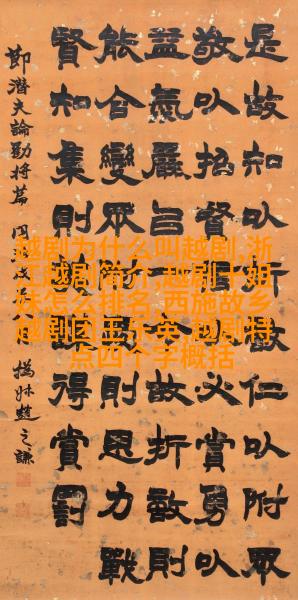 是故知以折敵仁以附眾
敬以招賢信以必賞勇以
益氣嚴以一令故折敵則
能合變眾附則思力戰
賢知集則得賞罰
節潛夫論勸將篇 同治 撝叔趙之謙
越剧为什么叫越剧,浙
江越剧简介,越剧十姐
妹怎么排名,西施故乡
越剧团王乐英,越剧特
点四个字概括